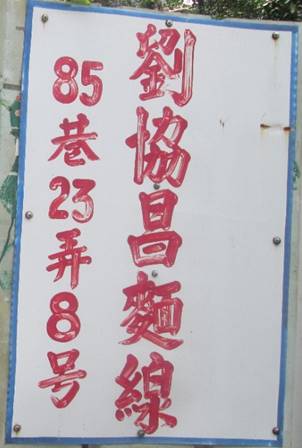 劉協昌麵線
85巷23弄8号